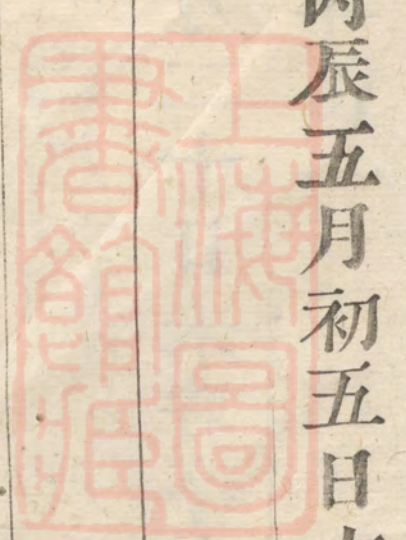 丙辰五月初五日
上海圖
書館藏